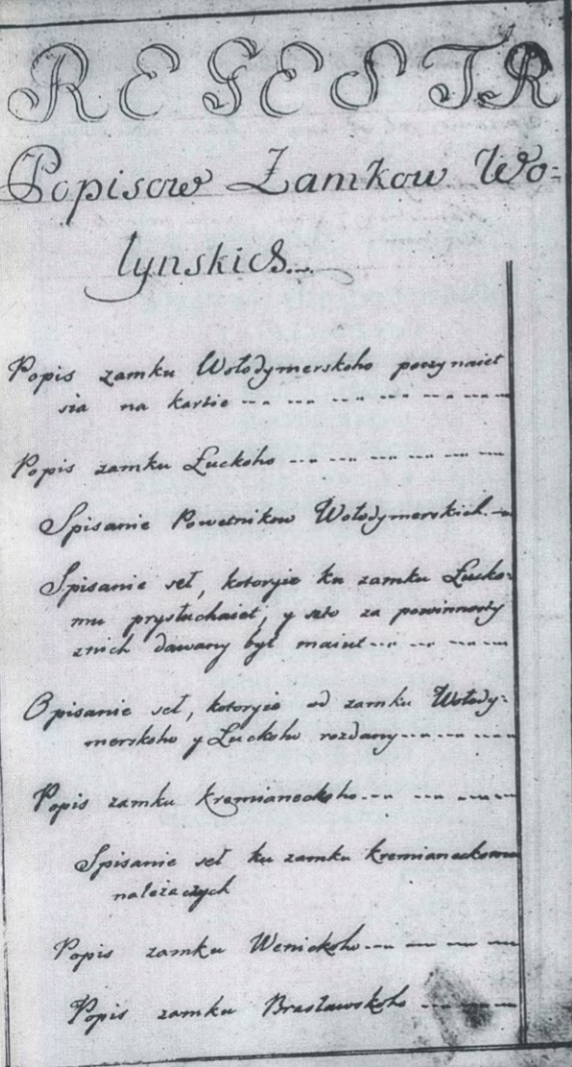 REGESTR
Popisow Zamkow Wo=
lynskich...
Popis zamku Wołodymerskoho poczynaiet
sia na kartie
Popis zamku Łuckoho
Spisanie Powetnikow Wołodymerskich
Spisanie seł, kotoryie ku zamku Łucko=
mu prysłuchaiut, y szto za powinnosty
znich dawany byt maiut
Opisanie seł, kotoryie od zamku Wołody=
merskoho y Łuckoho rozdany
Popis zamku Kremianeckoho
Spisanie seł ku zamku Kremianeckomu
należaczych
Popis zamku Wenickoho
Popis zamku Brasławskoho